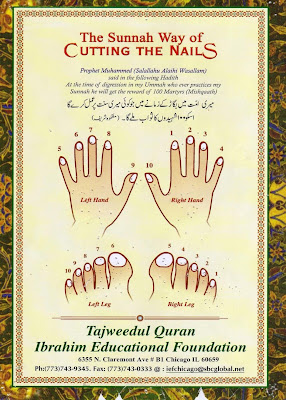 The Sunnah Way of
CUTTING THE NAILS
Prophet Muhammed (Salallahu Alaihi Wasallam)
said in the following Hadith
At the time of digression in my Ummah who ever practices my
Sunnah he will get the reward of 100 Martyrs (Mishqaath)
میری امت میں بگاڑ کے زمانے میں جو کوئی میری سنت پر عمل کرے گا
اسکو ۱۰۰ شہیدوں کا ثواب ملے گا۔
5 6 7 8 1 2 3 4
9 10
Left Hand Right Hand
10 9 8 7 6 5 4 3 2 1
Left Leg Right Leg
Tajweedul Quran
Ibrahim Educational Foundation
6355 N. Claremont Ave # B1 Chicago IL 60659
Ph:(773)743-9345. Fax: (773)743-0333 @ : iefchicago@sbcglobal.net